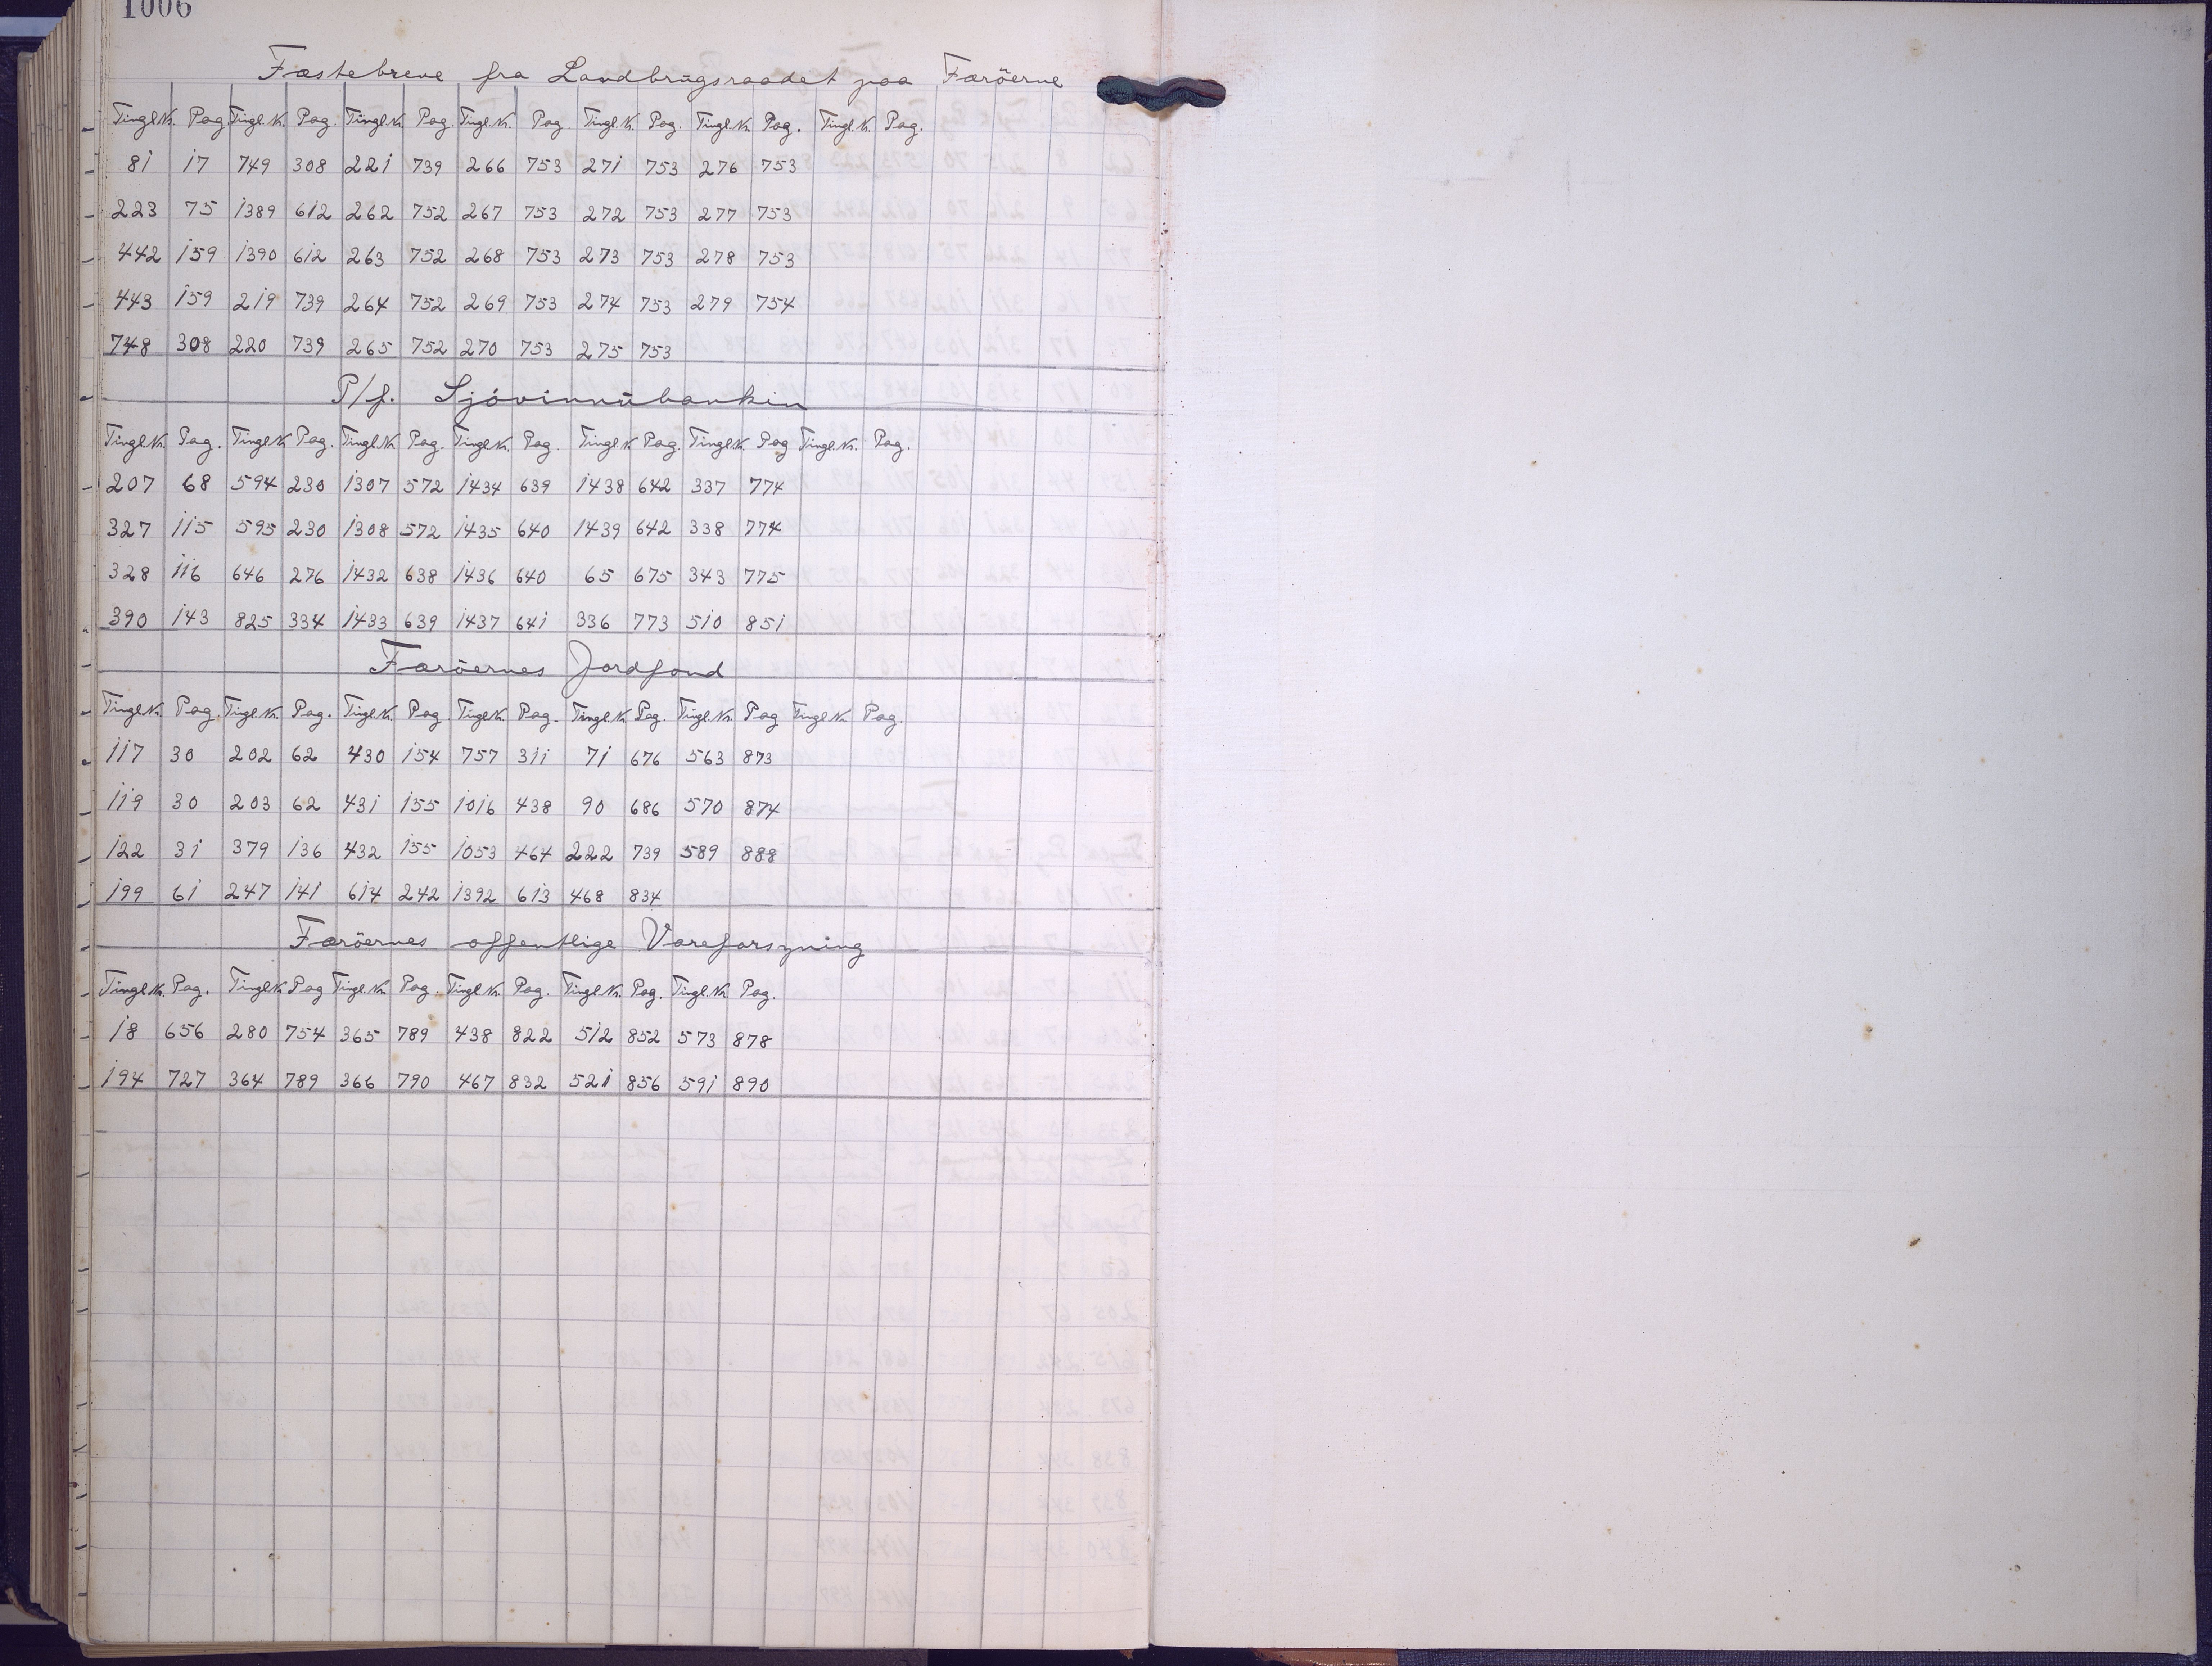 1006
Fæstebreve fra Landbrugsraadet paa Færöerne
Tingl.Nr. Pag. Tingl.Nr. Pag. Tingl.Nr. Pag. Tingl.Nr. Pag. Tingl.Nr. Pag. Tingl.Nr. Pag. Tingl.Nr. Pag.
81 17 749 308 221 739 266 753 271 753 276 753
223 75 1389 612 262 752 267 753 272 753 277 753
442 159 1390 612 263 752 268 753 273 753 278 753
443 159 219 739 264 752 269 753 274 753 279 754
748 308 220 739 265 752 270 753 275 753
P/f. Sjóvinnubankin
Tingl.Nr. Pag. Tingl.Nr. Pag. Tingl.Nr. Pag. Tingl.Nr. Pag. Tingl.Nr. Pag. Tingl.Nr. Pag Tingl.Nr. Pag.
207 68 594 230 1307 572 1434 639 1438 642 337 774
327 115 595 230 1308 572 1435 640 1439 642 338 774
328 116 646 276 1432 638 1436 640 65 675 343 775
390 143 825 334 1433 639 1437 641 336 773 510 851
Færöernes Jordfond
Tingl.Nr. Pag. Tingl.Nr. Pag. Tingl.Nr. Pag Tingl.Nr. Pag. Tingl.Nr. Pag. Tingl.Nr. Pag Tingl.Nr. Pag.
117 30 202 62 430 154 757 311 71 676 563 873
119 30 203 62 431 155 1016 438 90 686 570 874
122 31 379 136 432 155 1053 464 222 739 589 888
199 61 247 141 614 242 1392 613 468 834
Færöernes offentlige Vareforsyning
Tingl.Nr. Pag. Tingl.Nr. Pag Tingl.Nr. Pag. Tingl.Nr. Pag. Tingl.Nr. Pag. Tingl.Nr. Pag.
18 656 280 754 365 789 438 822 512 852 573 878
194 727 364 789 366 790 467 832 521 856 591 890